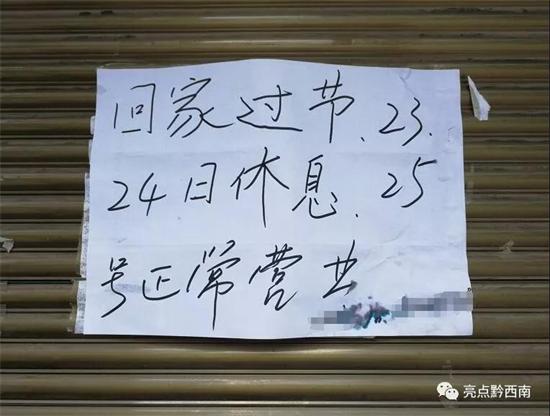 回家过节、23.
24日休息、25
号正常营业
亮点黔西南